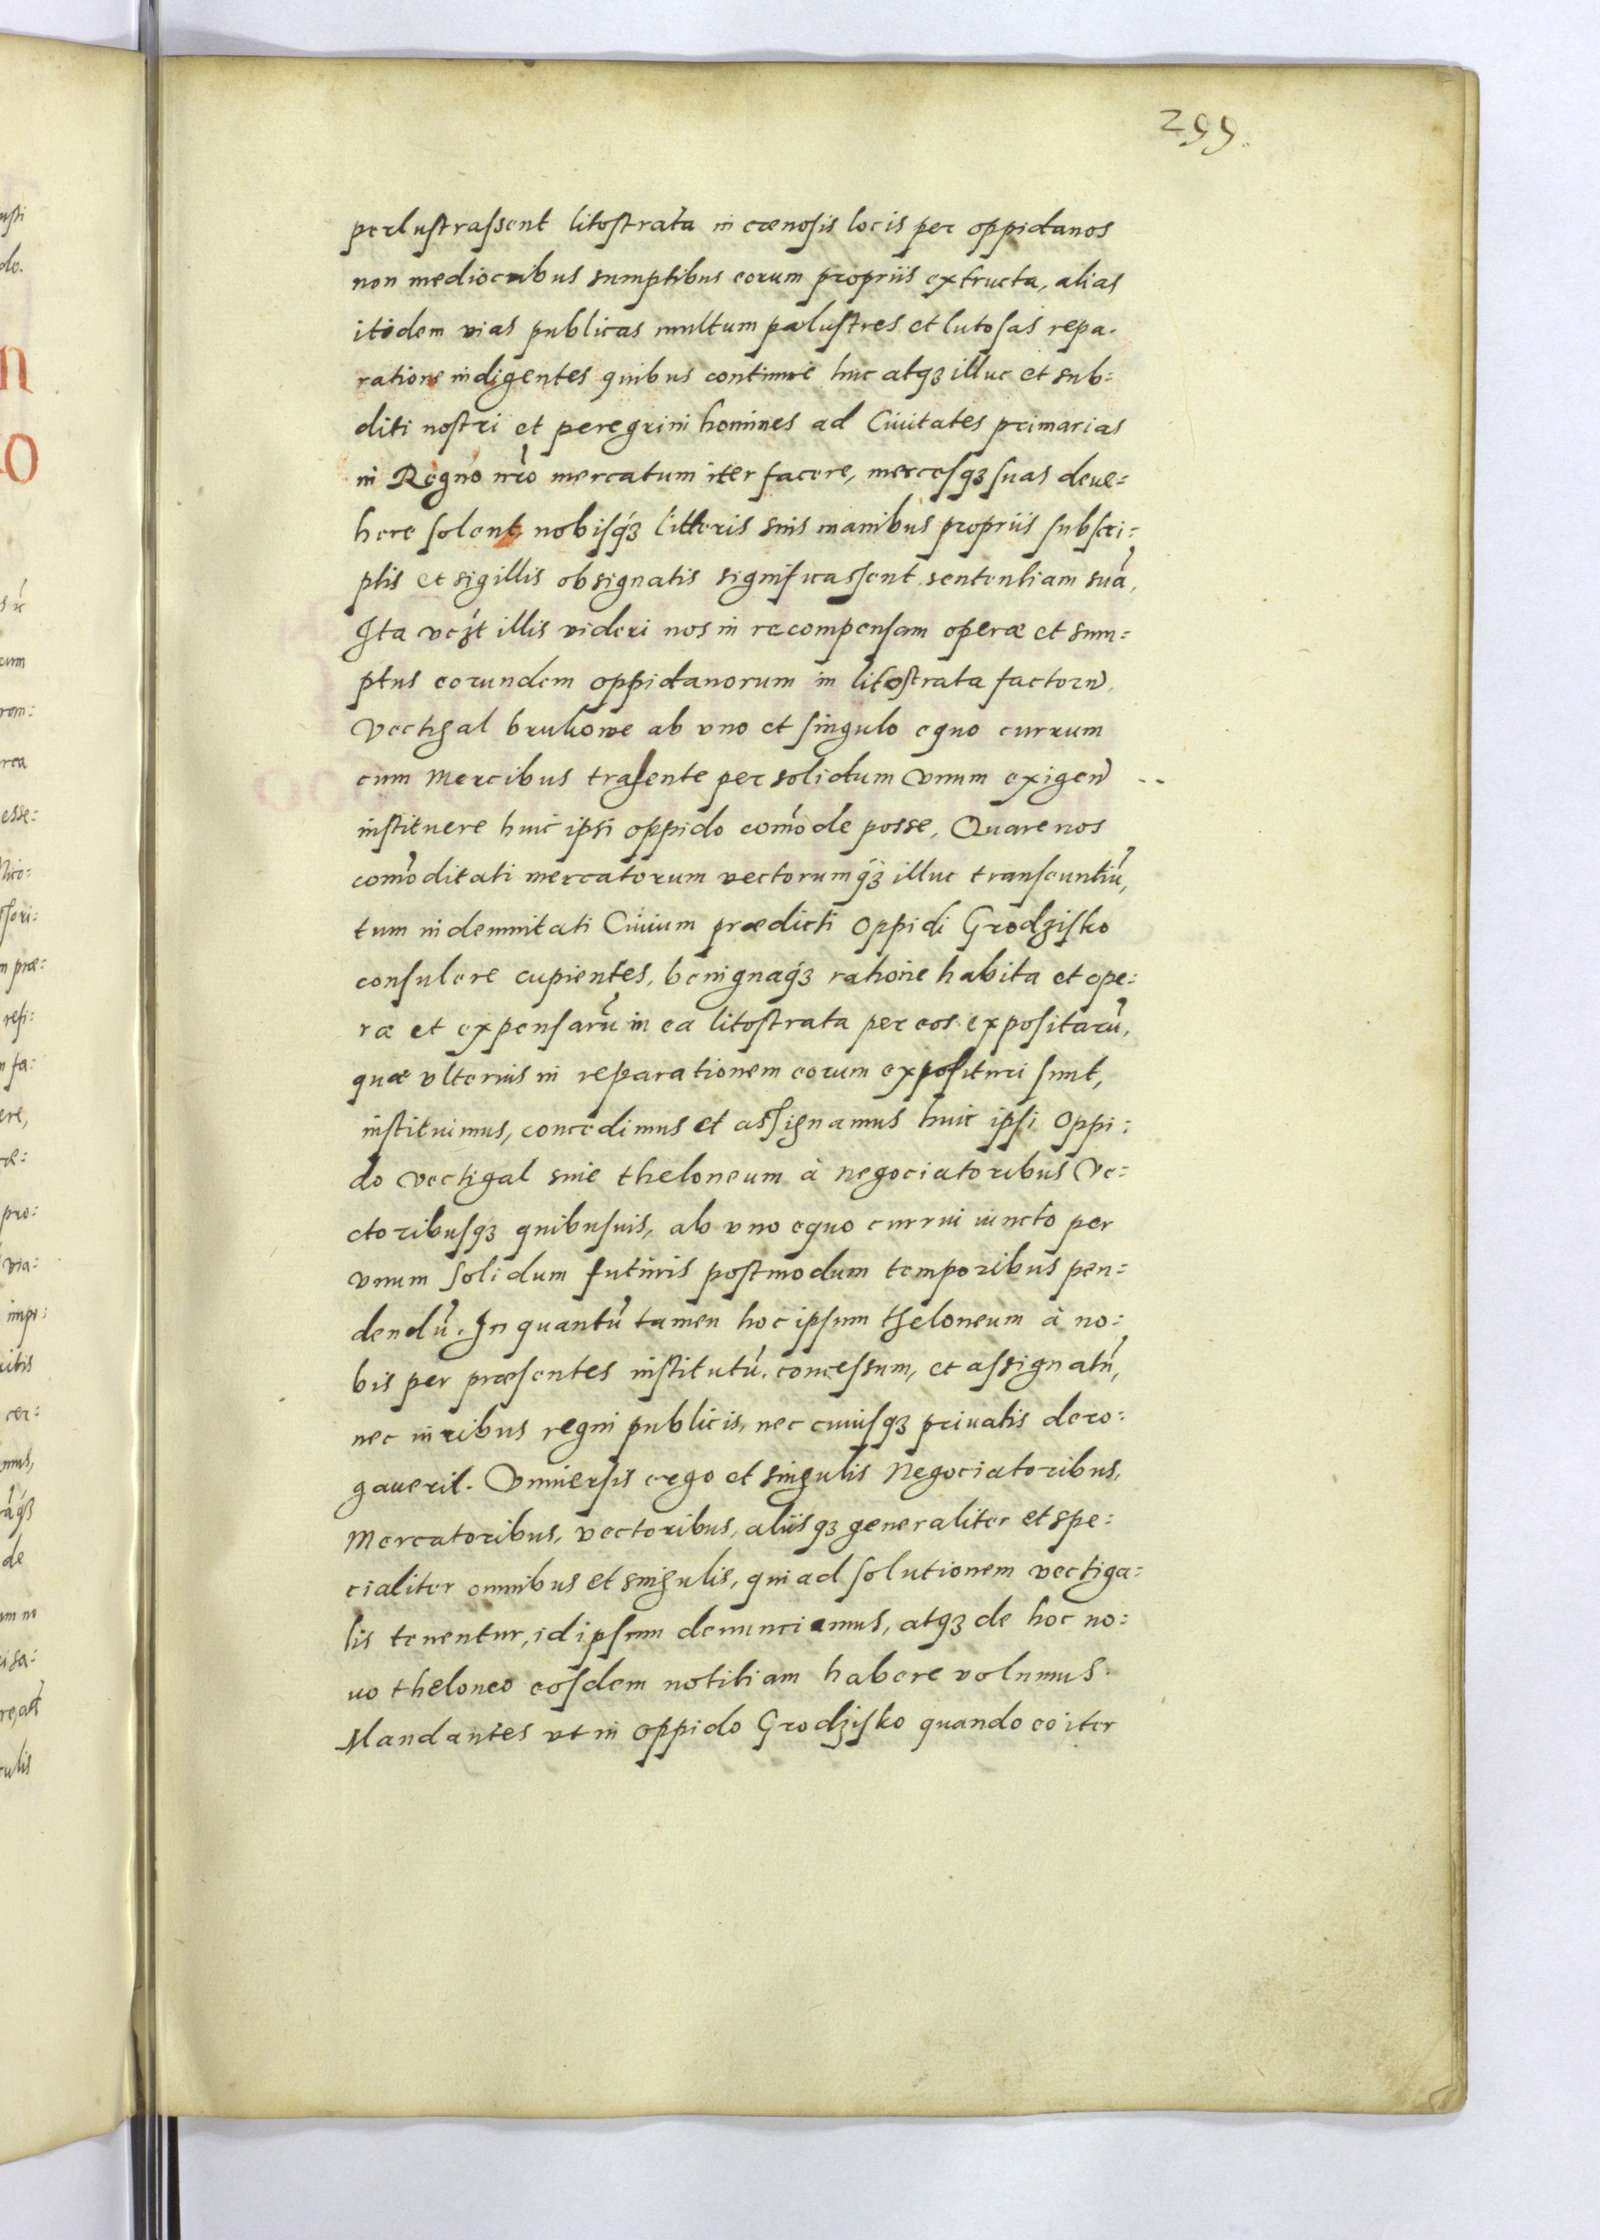 299.
perlustrassent litostrata in cænosis locis per oppidanos
non mediocribus sumptibus eorum propriis extructa, alias
itidem vias publicas multum palustres et lutosas repa-
ratione indigentes quibus continue huc atqꝫ illuc et sub:
diti nostri et peregrini homines ad Ciuitates primarias
in Regno nr̃o mercatum iter facere, mercesqꝫ suas deue:
here solent, nobisqꝫ litteris suis manibus propriis subscri:
ptis et sigillis obsignatis significassent sententiam suã,
Ita vezt illis videri nos in recompensam operæ et sum:
ptus eorundem oppidanorum in litostrata factorũ,
Vectigal brukowe ab vno et singulo equo currum
cum Mercibus trahente per solidum vnum exigen̄
instituere huic ipsi oppido com̃ode posse, Quare nos
com̃oditati mercatorum vectorumqꝫ illuc transeuntiũ,
tum indemnitati Ciuium prædicti oppidi Grodzisko
consulere cupientes, benignaqꝫ ratione habita et ope:
ræ et expensarũ in ea litostrata per eos expositarũ,
quæ vlterius in reparationem eorum exposituri sunt,
instituimus, concedimus et assignamus huic ipsi Oppi:
do vectigal siue theloneum à negociatoribus Ve:
ctoribusqꝫ quibusuis, ab vno equo currui iuncto per
vnum solidum futuris postmodum temporibus pen:
dendũ. In quantũ tamen hoc ipsum theloneum à no:
bis per præsentes institutũ, concessum, et assignatũ,
nec iuribus regni publicis, nec cuiusqꝫ priuatis dero:
gauerit. Vniuersis ergo et singulis Negociatoribus,
Mercatoribus, vectoribus, aliisqꝫ generaliter et spe:
cialiter omnibus et singulis, qui ad solutionem vectiga:
lis tenentur, id ipsum denunciamus, atqꝫ de hoc no:
uo theloneo eosdem notitiam habere volumus.
Mandantes vt in oppido Grodzisko quando eo iter